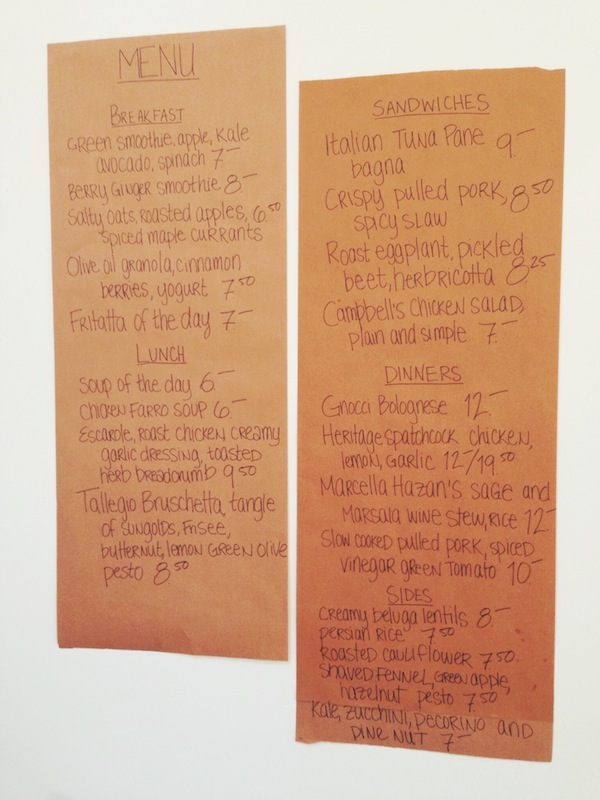 MENU
BREAKFAST
GREEN smoothie, apple, Kale
avocado, spinach 7-
BERRY GINGER smoothie 8-
Salty oats, roasted apples, 6.50
spiced maple currants
Olive oil granola, cinnamon
berries, yogurt 7.50
Fritatta of the day 7-
LUNCH
SOUP of the day 6.-
CHICKEN FARRO SOUP 6.-
Escarole, roast chicken creamy
garlic dressing, toasted
herb breadcrumb 9.50
Tallegio Bruschetta, tangle
of sungolds, frisee,
butternut, lemon GREEN olive
pesto 8.50
SANDWICHES
Italian TUNA Pane 9.-
bagna
CRISPY pulled pork, 8.50
spicy slaw
Roast eggplant, pickled
beet, herb ricotta 8.25
Campbell's chicken salad,
plain and simple 7.-
DINNERS
Gnocci Bolognese 12.-
Heritage spatchcock chicken,
lemon, garlic 12-/19.50
Marcella Hazan's sage and
Marsala wine stew, rice 12-
Slow cooked pulled pork, spiced
vinegar green tomato 10-
SIDES
Creamy beluga lentils 8.-
persian rice 7.50
Roasted cauliflower 7.50
shaved fennel, green apple,
hazelnut pesto 7.50
Kale, zucchini, pecorino and
pine nut 7.-